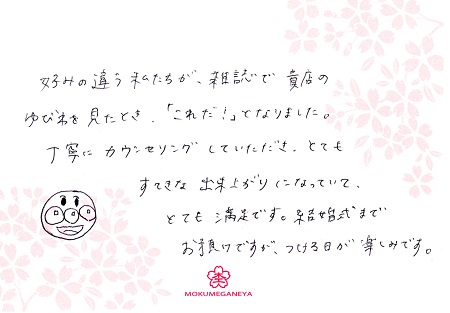 好みの違う私たちが、雑誌で貴店の
ゆびわを見たとき、「これだ!」となりました。
丁寧にカウンセリングしていただき、とても
すてきな出来上がりになっていて、
とても満足です。結婚式まで
お預けですが、つける日が楽しみです。
MOKUMEGANEYA